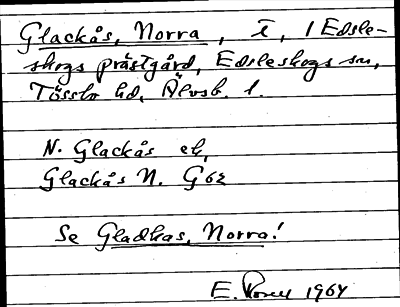 Glackås, Norra, t, 1 Edsle-
skogs prästgård, Edsleskogs sn,
Tössbo hd, Älvsb. l.
N. Glackås ek,
Glackås N. G62
Se Gladkas, Norra!
E. 1964